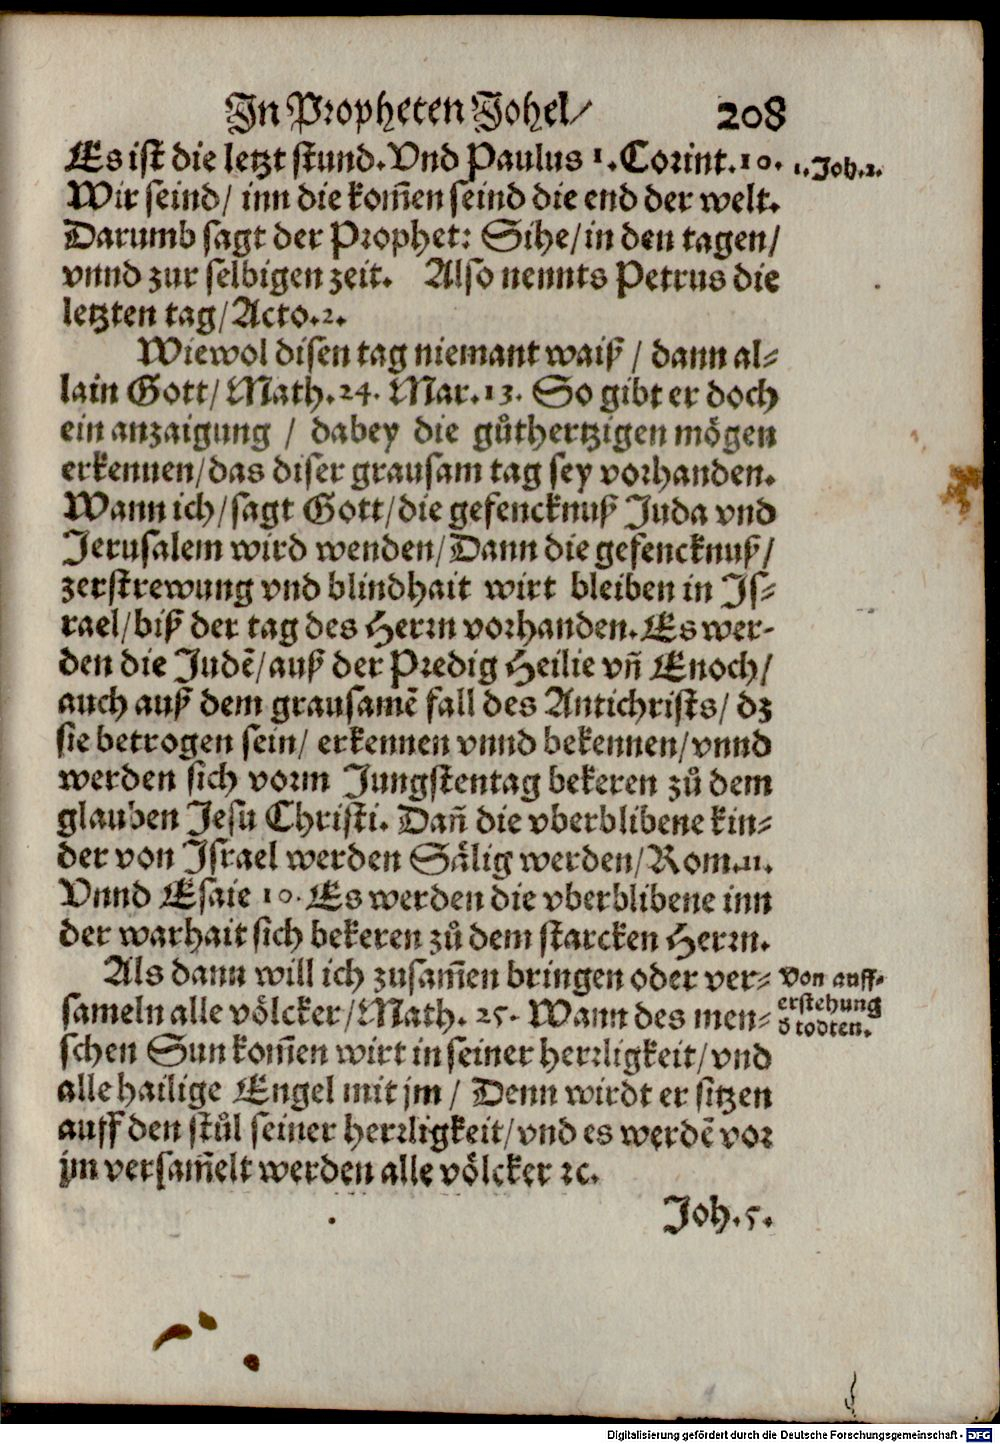 In Propheten Johel/ 208
Es ist die letzt stund. Vnd Paulus 1. Corint. 10. 1. Joh. 2.
Wir seind/ inn die kom̃en seind die end der welt.
Darumb sagt der Prophet: Sihe/ in den tagen/
vnnd zur selbigen zeit. Also nennts Petrus die
letzten tag/ Acto. 2.
Wiewol disen tag niemant waiß / dann al⸗
lain Gott/ Math. 24. Mar. 13. So gibt er doch
ein anzaigung / dabey die gůthertzigen mögen
erkennen/ das diser grausam tag sey vorhanden.
Wann ich/ sagt Gott/ die gefencknuß Juda vnd
Jerusalem wird wenden/ Dann die gefencknuß/
zerstrewung vnd blindhait wirt bleiben in Is⸗
rael/ biß der tag des Herrn vorhanden. Es wer-
den die Judẽ/ auß der Predig Helie vñ Enoch/
auch auß dem grausamẽ fall des Antichrists/ dz
sie betrogen sein/ erkennen vnnd bekennen/ vnnd
werden sich vorm Jungstentag bekeren zů dem
glauben Jesu Christi. Dañ die vberblibene kin⸗
der von Israel werden Sälig werden/ Rom. 11.
Vnnd Esaie 10. Es werden die vberblibene inn
der warhait sich bekeren zů dem starcken Herrn.
Als dann will ich zusam̃en bringen oder ver⸗
sameln alle völcker/ Math. 25. Wann des men⸗
schen Sun kom̃en wirt in seiner herrligkeit/ vnd
alle hailige Engel mit jm / Denn wirdt er sitzen
auff den stůl seiner herrligkeit/ vnd es werdẽ vor
jm versam̃elt werden alle völcker ꝛc.
Von auff⸗
erstehung
d̕ todten.
Joh. 5.
Digitalisierung gefördert durch die Deutsche Forschungsgemeinschaft - DFG